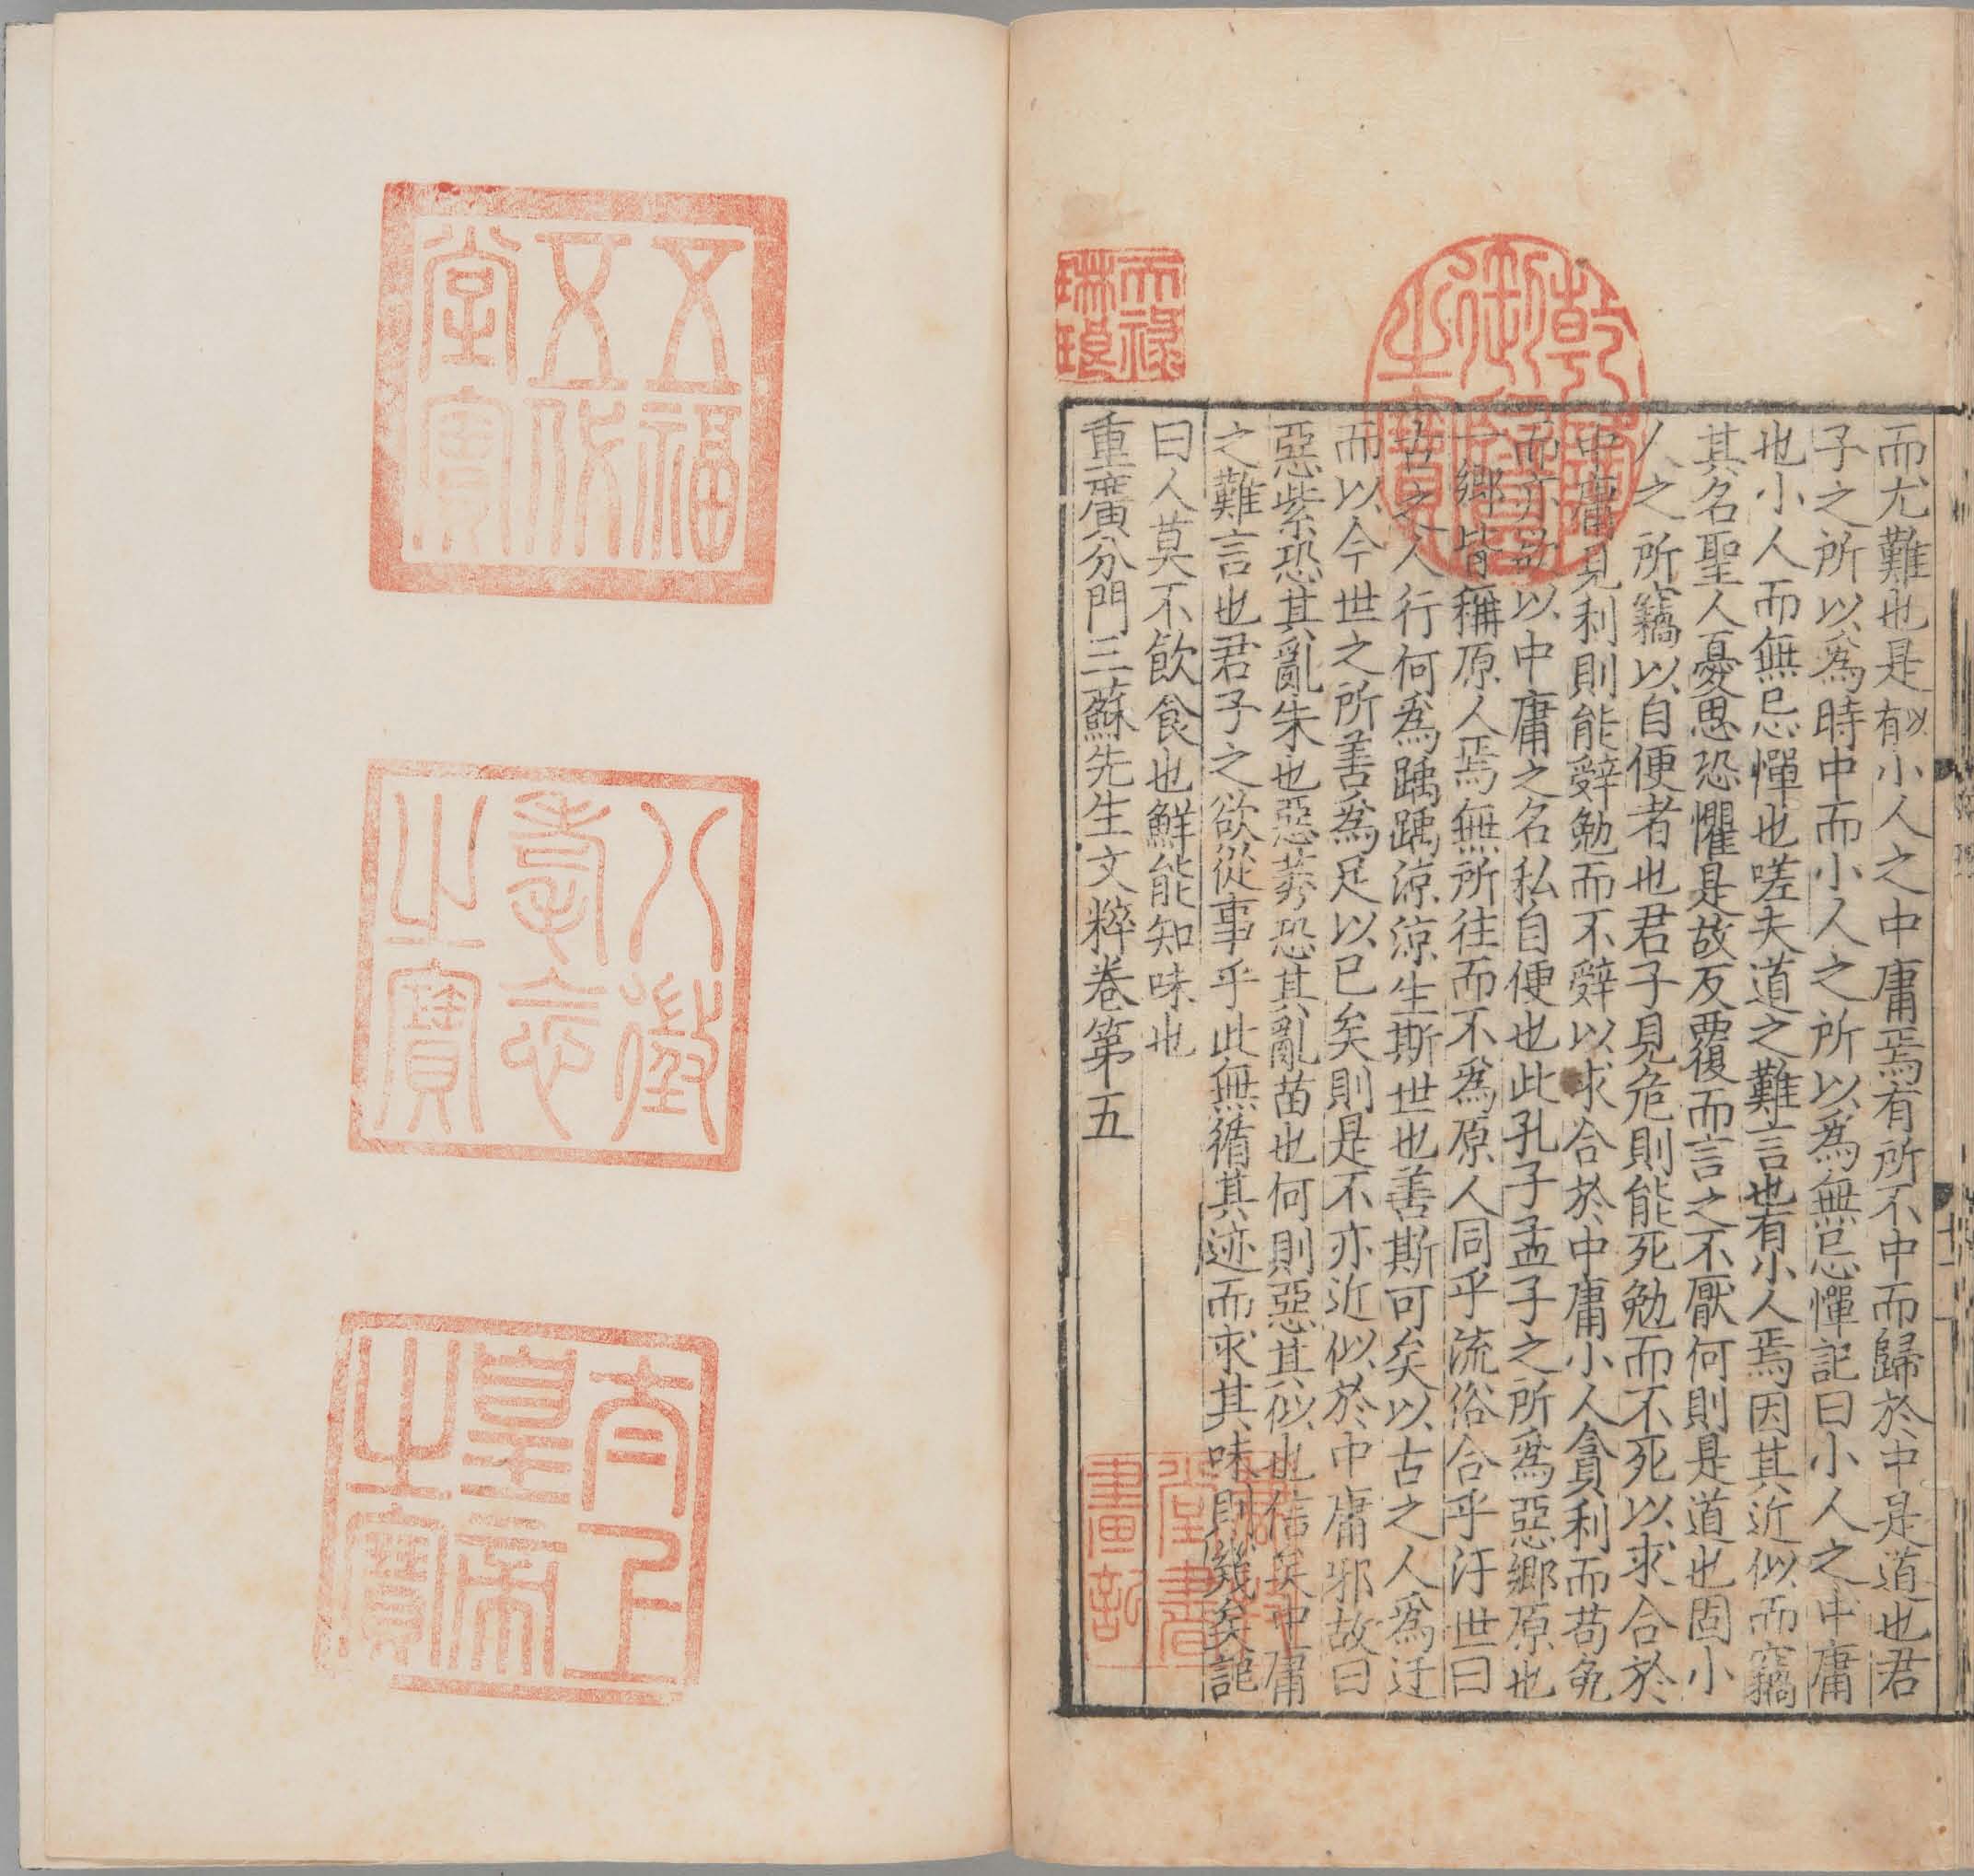 而尤難也是有小人之中庸焉有所不中而歸於中是道也君
子之所以爲時中而小人之所以爲無忌憚記曰小人之中庸
也小人而無忌憚也嗟夫道之難言也有小人焉因其近似而竊
其名聖人憂思恐懼是故反覆而言之不厭何則是道也固小
人之所竊以自便者也君子見危則能死勉而不死以求合於
中庸見利則能辭勉而不辭以求合於中庸小人貪利而苟免
而亦欲以中庸之名私自便也此孔子孟子之所爲惡鄉原也
一鄉皆稱原人焉無所往而不爲原人同乎流俗合乎汙世曰
古之人行何爲踽踽涼涼生斯世也善斯可矣以古之人爲迂
而以今世之所善爲足以已矣則是不亦近似於中庸邪故曰
惡紫恐其亂朱也惡莠恐其亂苗也何則惡其似也信矣中庸
之難言也君子之欲從事乎此無循其迹而求其味則幾矣記
曰人莫不飲食也鮮能知味也
重廣分門三蘇先生文粹卷第五
乾隆御覽之寶
天祿琳琅
五福五代堂寶
八徵耄念之寶
太上皇帝之寶